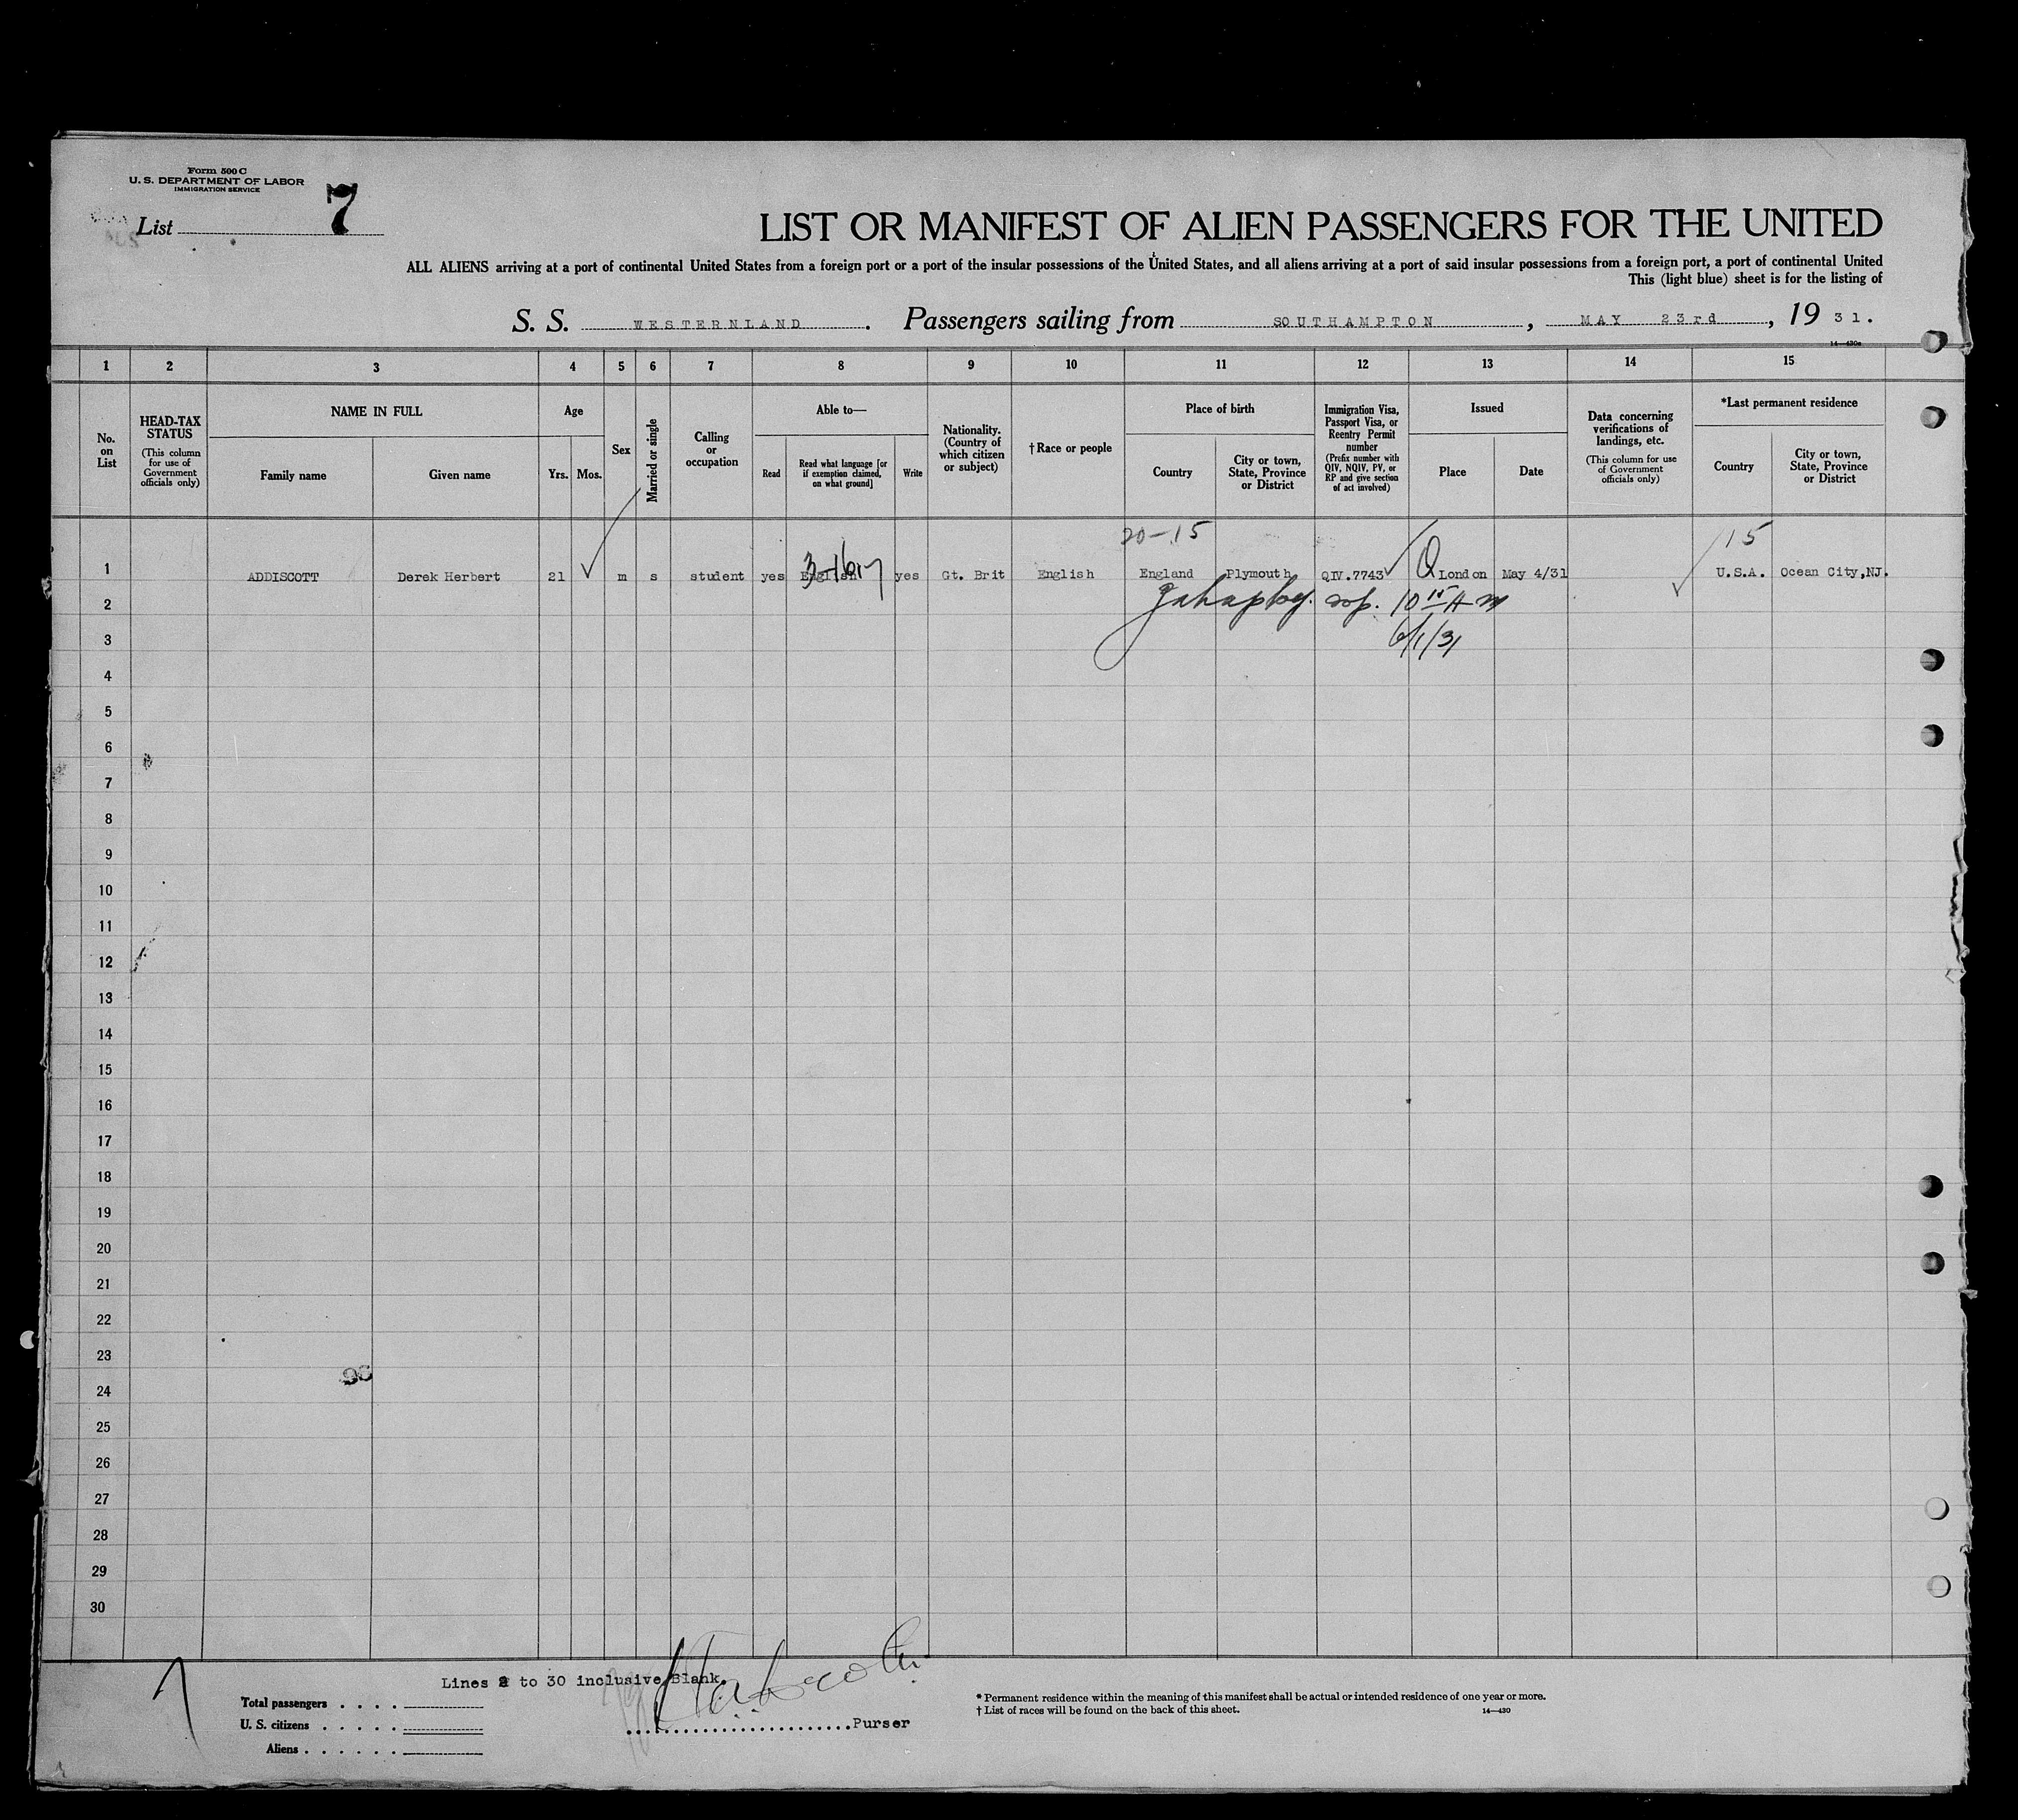 Form 500 C
U. S. DEPARTMENT OF LABOR
IMMIGRATION SERVICE
List 7
LIST OR MANIFEST OF ALIEN PASSENGERS FOR THE UNITED
ALL ALIENS arriving at a port of continental United States from a foreign port or a port of the insular possessions of the United States, and all aliens arriving at a port of said insular possessions from a foreign port, a port of continental United
This (light blue) sheet is for the listing of
S. S. WESTERNLAND. Passengers sailing from SOUTHAMPTON, MAY 23rd, 19 31.
14—430a
1 2 3 4 5 6 7 8 9 10 11 12 13 14 15
No. on List
HEAD-TAX STATUS
(This column for use of Government officials only)
NAME IN FULL
Family name
Given name
Age
Yrs. Mos.
Sex
Married or single
Calling or occupation
Able to—
Read
Read what language [or if exemption claimed, on what ground]
Write
Nationality. (Country of which citizen or subject)
†Race or people
Place of birth
Country
City or town, State, Province or District
Immigration Visa, Passport Visa, or Reentry Permit number
(Prefix number with QIV, NQIV, PV, or RP and give section of act involved)
Issued
Place
Date
Data concerning verifications of landings, etc.
(This column for use of Government officials only)
*Last permanent residence
Country
City or town, State, Province or District
20-15 15
1 ADDISCOTT Derek Herbert 21 m s student yes English yes Gt. Brit English England Plymouth QIV.7743 Q London May 4/31 U.S.A. Ocean City,NJ.
2 10 15 AM
3 6/1/31
4
5
6
7
8
9
10
11
12
13
14
15
16
17
18
19
20
21
22
23
24
25
26
27
28
29
30
Lines 2 to 30 inclusive Blank.
Total passengers . . . .
U. S. citizens . . . . .
Aliens . . . . . .
Purser
* Permanent residence within the meaning of this manifest shall be actual or intended residence of one year or more.
† List of races will be found on the back of this sheet.
14—430